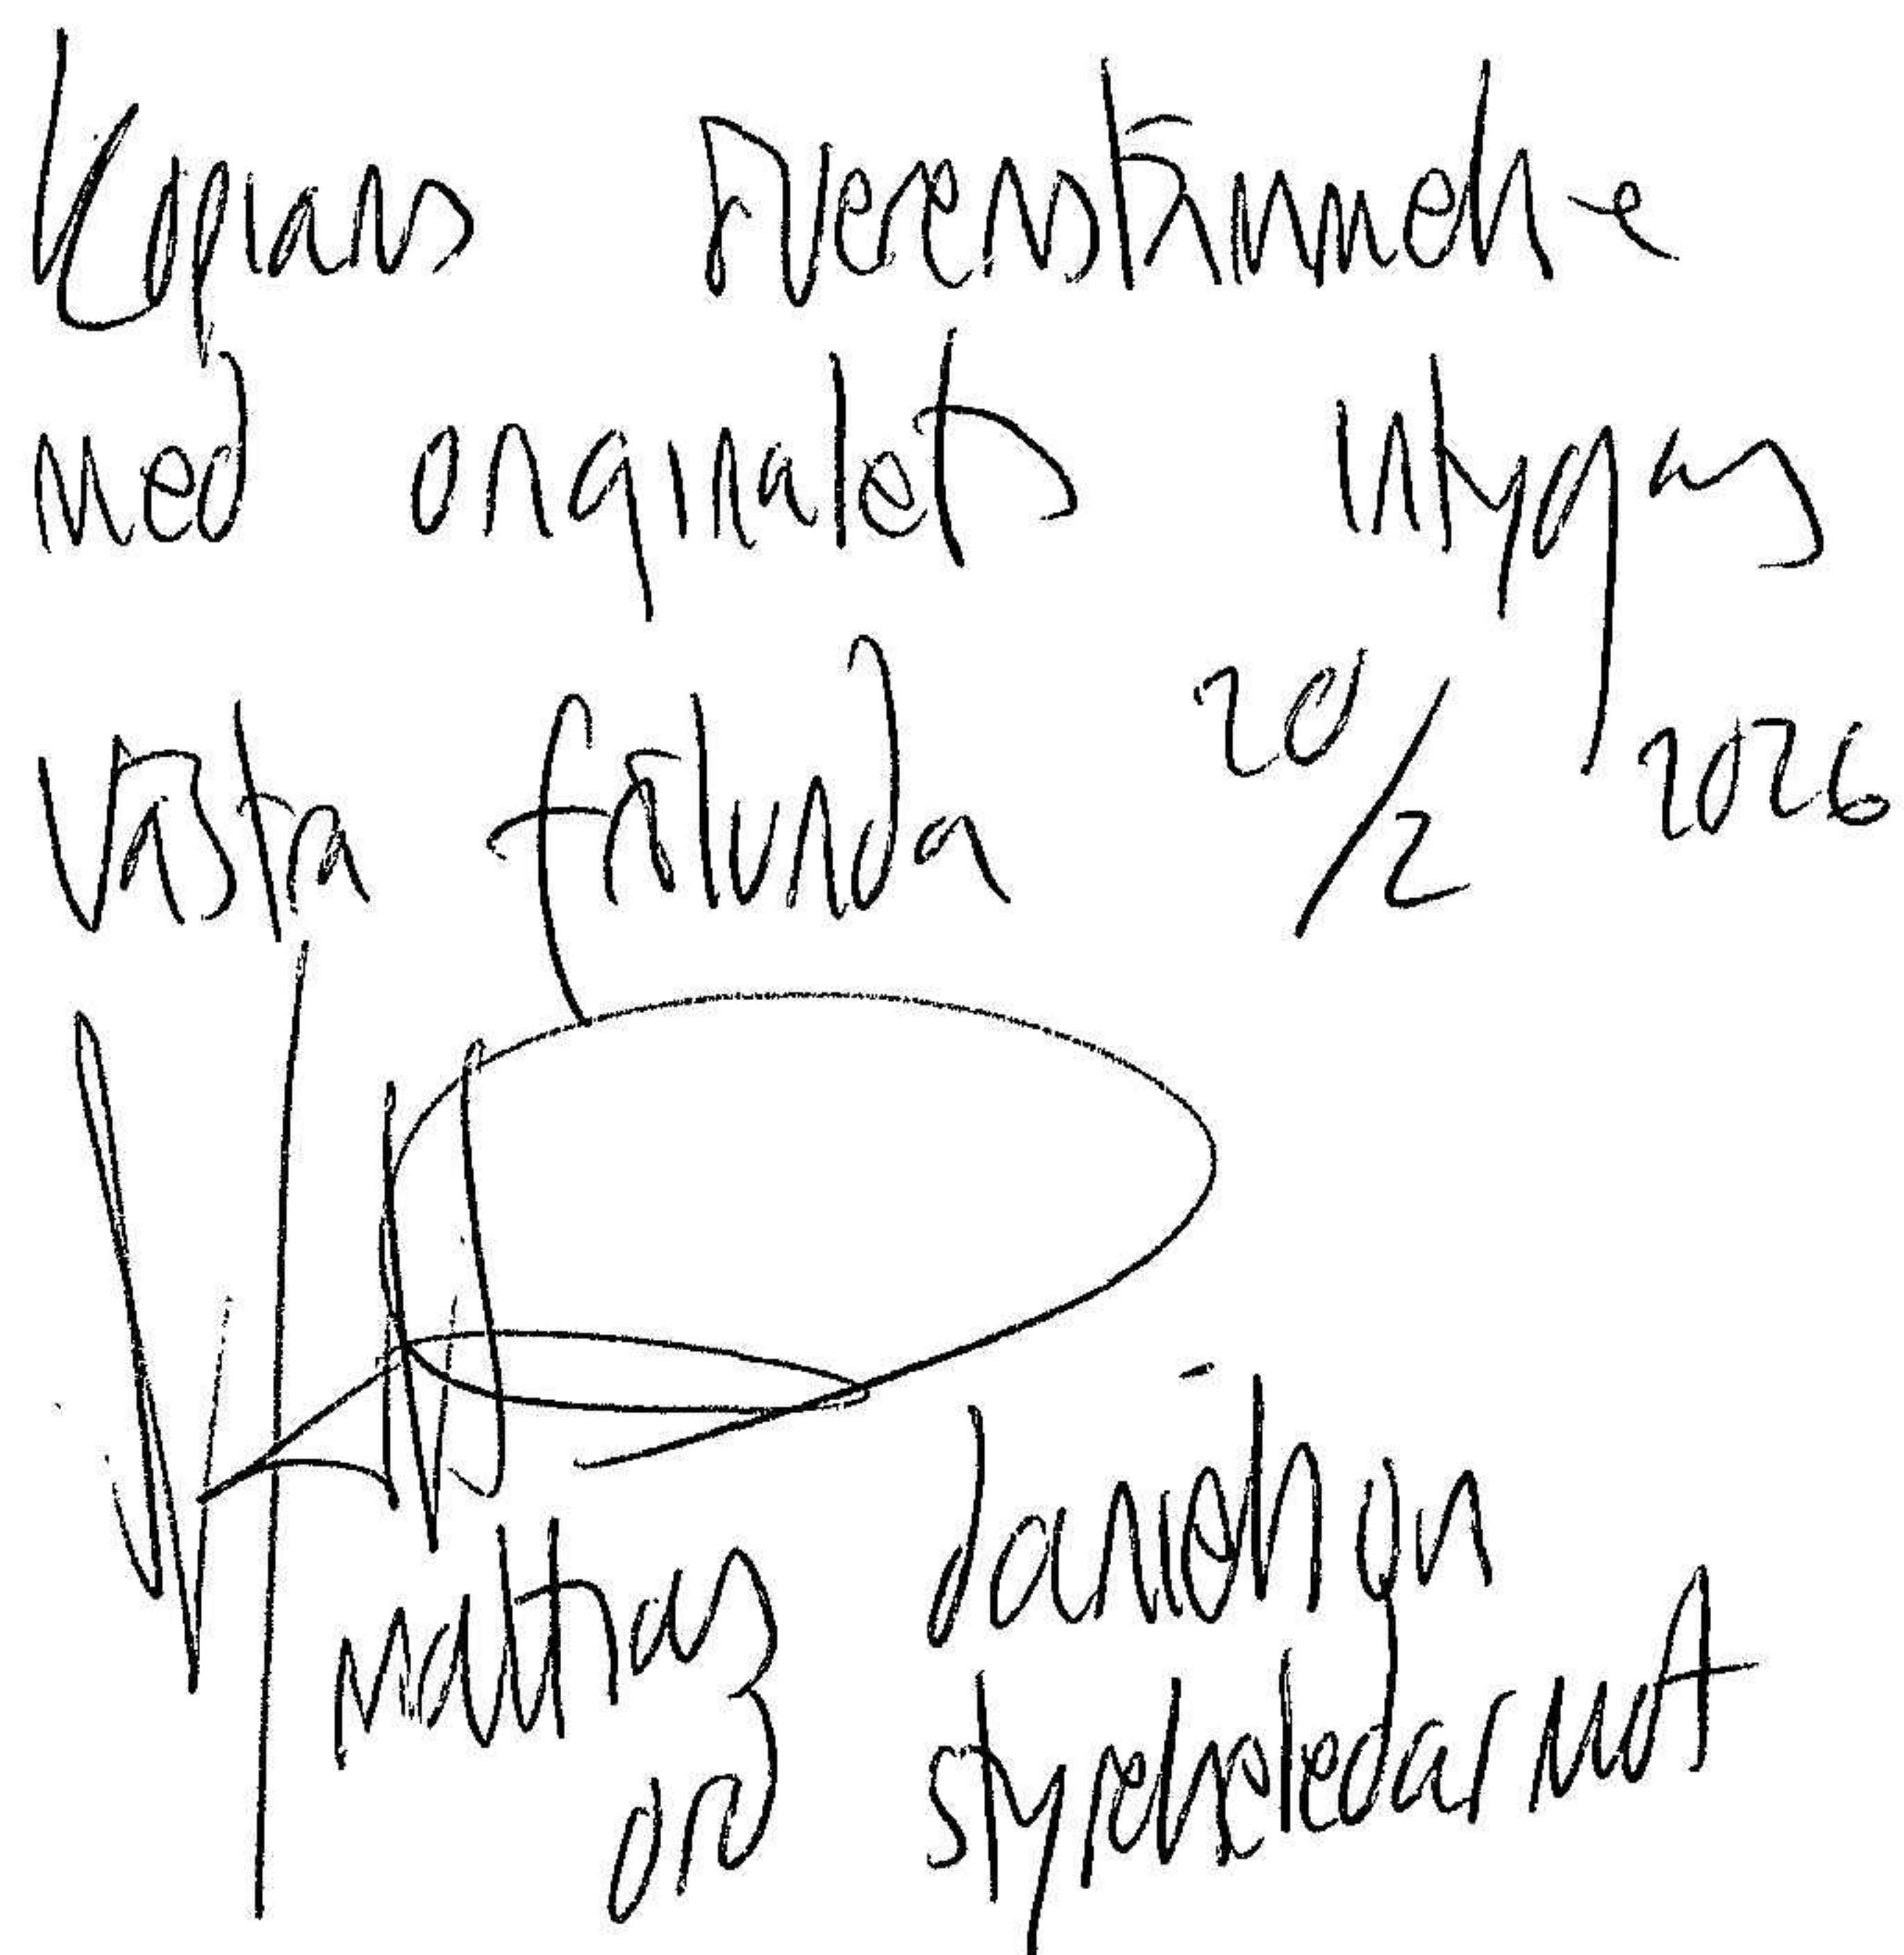 Kopians överenstämmelse
med orginalets intygas
Västra frölunda 20/2 2026
Mattias Danielson
ord styrelseledarmot